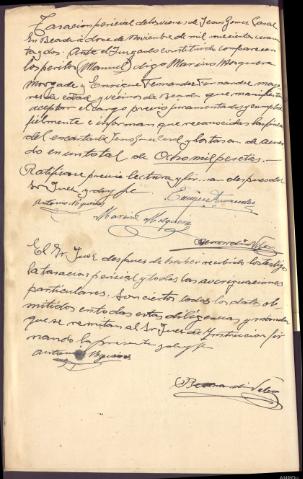 Tasacion pericial de los vienes de Jesus Gomez Canal
En Beade a doce de Noviembre de mil novecientos cuaren
ta y dos. Ante el Juzgado constituido comparecen
los peritos Manuel Diego Mariño Mosquera
Morgade y Enrique Fernandez Fernandez, mayo
res de edad y vecinos de Beade que, manifiestan
aceptar el cargo previo juramento de cumplir
fielmente e informan que reconocidas las fincas
del encartado Jesus Gomez Canal y las tasan de acuer
do en un total de Ocho mil pesetas.
Ratifican previa lectura y firman despues del
Sr Juez y doy fe
Enrique Fernandez
Antonio
Manuel Mosquera
El Sr. Juez despues de haber recibido los
la tasacion pericial y todas las averiguaciones
particulares. Son ciertos todos los datos
mitidos en todas estas diligencias y manda
que se remitan al Sr Juez de Instruccion fir
mando la presente y doy fe
Antonio